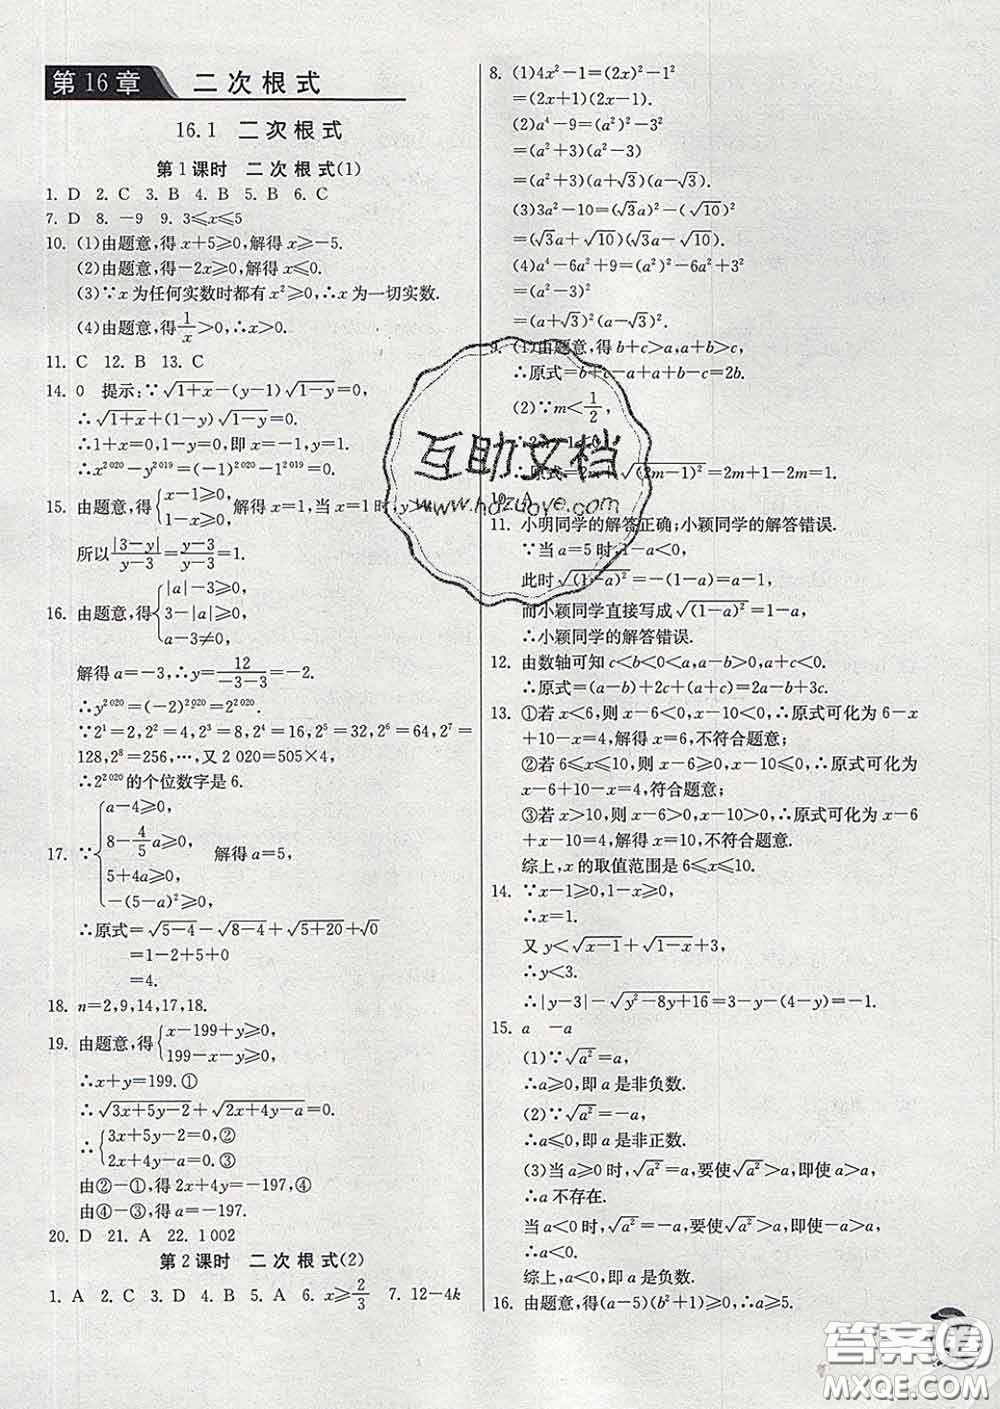 第16章 二次根式
16.1 二次根式
第1课时 二次根式(1)
1. D 2. C 3. B 4. B 5. B 6. C
7. D 8. －9 9. 3≤x≤5
10. (1)由题意,得x+5≥0,解得x≥－5.
(2)由题意,得－2x≥0,解得x≤0.
(3)∵x为任何实数时都有x²≥0,∴x为一切实数.
(4)由题意,得1/x>0,∴x>0.
11. C 12. B 13. C
14. 0 提示:∵√(1+x)－(y－1)√(1－y)=0,
∴√(1+x)+(1－y)√(1－y)=0.
∴1+x=0,1－y=0,即x=－1,y=1.
∴x²⁰²⁰－y²⁰¹⁹=(－1)²⁰²⁰－1²⁰¹⁹=0.
15. 由题意,得{x－1≥0, 1－x≥0. 解得x=1,当x=1时,y
所以|3－y|/(y－3)=(y－3)/(y－3)=1.
16. 由题意,得{|a|－3≥0, 3－|a|≥0, a－3≠0,
解得a=－3,∴y=12/(－3－3)=－2.
∴y²⁰²⁰=(－2)²⁰²⁰=2²⁰²⁰.
∵2¹=2,2²=4,2³=8,2⁴=16,2⁵=32,2⁶=64,2⁷=
128,2⁸=256,…,又2 020=505×4,
∴2²⁰²⁰的个位数字是6.
17. ∵{a－4≥0, 8－4/5a≥0, 5+4a≥0, －(5－a)²≥0, 解得a=5,
∴原式=√(5－4)－√(8－4)+√(5+20)+√0
=1－2+5+0
=4.
18. n=2,9,14,17,18.
19. 由题意,得{x－199+y≥0, 199－x－y≥0,
∴x+y=199.①
∴√(3x+5y－2)+√(2x+4y－a)=0.
∴{3x+5y－2=0,② 2x+4y－a=0.③
由②－①,得2x+4y=－197,④
由④－③,得a=－197.
20. D 21. A 22. 1 002
第2课时 二次根式(2)
1. A 2. C 3. A 4. B 5. A 6. x≥2/3 7. 12－4k
8. (1)4x²－1=(2x)²－1²
=(2x+1)(2x－1).
(2)a⁴－9=(a²)²－3²
=(a²+3)(a²－3)
=(a²+3)(a+√3)(a－√3).
(3)3a²－10=(√3a)²－(√10)²
=(√3a+√10)(√3a－√10).
(4)a⁴－6a²+9=(a²)²－6a²+3²
=(a²－3)²
=(a+√3)²(a－√3)².
9. (1)由题意,得b+c>a,a+b>c,
∴原式=b+c－a+a+b－c=2b.
(2)∵m<1/2,
∴原式=2m－√(2m－1)²=2m+1－2m=1.
10. A
11. 小明同学的解答正确;小颖同学的解答错误.
∵当a=5时,1－a<0,
此时√(1－a)²=－(1－a)=a－1,
而小颖同学直接写成√(1－a)²=1－a,
∴小颖同学的解答错误.
12. 由数轴可知c<b<0<a,a－b>0,a+c<0.
∴原式=(a－b)+2c+(a+c)=2a－b+3c.
13. ①若x<6,则x－6<0,x－10<0,∴原式可化为6－x
+10－x=4,解得x=6,不符合题意;
②若6≤x≤10,则x－6≥0,x－10≤0,∴原式可化为
x－6+10－x=4,符合题意;
③若x>10,则x－6>0,x－10>0,∴原式可化为x－6
+x－10=4,解得x=10,不符合题意.
综上,x的取值范围是6≤x≤10.
14. ∵x－1≥0,1－x≥0,
∴x=1.
又y<√(x－1)+√(1－x)+3,
∴y<3.
∴|y－3|－√(y²－8y+16)=3－y－(4－y)=－1.
15. a －a
(1)∵√a²=a,
∴a≥0,即a是非负数.
(2)∵√a²=－a,
∴a≤0,即a是非正数.
(3)当a≥0时,√a²=a,要使√a²>a,即使a>a,
∴a不存在.
当a<0时,√a²=－a,要使√a²>a,即使－a>a,
综上,a<0,即a是负数.
16. 由题意,得(a－5)(b²+1)≥0,∴a≥5.
互助文档
www.hdzuoye.com
答案圈
MXQE.COM